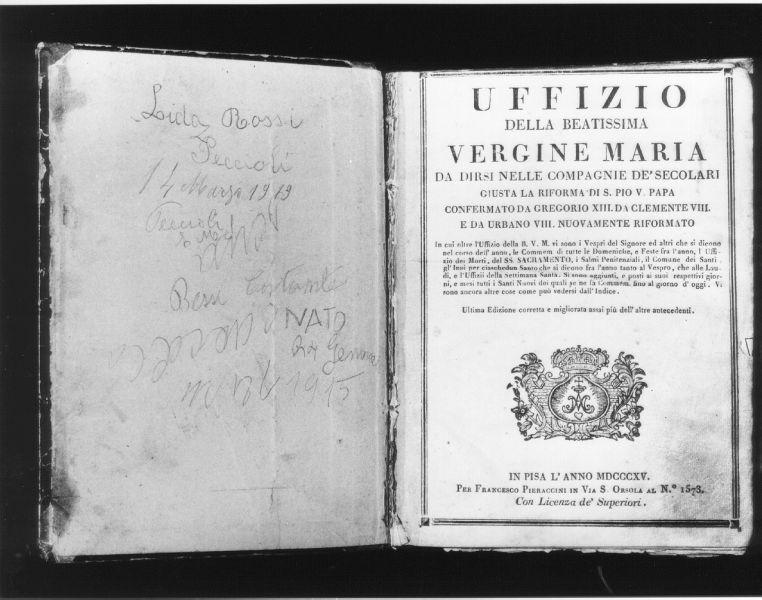 Lida Rossi
Peccioli
14 Marzo 1919
Peccioli
NATO
Genova
1915
UFFIZIO
DELLA BEATISSIMA
VERGINE MARIA
DA DIRSI NELLE COMPAGNIE DE' SECOLARI
GIUSTA LA RIFORMA DI S. PIO V. PAPA
CONFERMATO DA GREGORIO XIII. DA CLEMENTE VIII.
E DA URBANO VIII. NUOVAMENTE RIFORMATO
In cui oltre l'Uffizio della B. V. M. vi sono i Vespri del Signore ed altri che si dicono
nel corso dell' anno, le Commem di tutte le Domeniche, e Feste fra l'anno, l' Uffi-
zio dei Morti, del SS. SACRAMENTO, i Salmi Penitenziali, il Comune dei Santi,
gl' Inni per ciaschedun Santo che si dicono fra l'anno tanto al Vespro, che alle Lau-
di, e l'Uffizii della Settimana Santa. Si sono aggiunti, e posti ai suoi respettivi gior-
ni, e mesi tutti i Santi Nuovi dei quali se ne fa Commem. fino al giorno d' oggi. Vi
sono ancora altre cose come può vedersi dall' Indice.
Ultima Edizione corretta e migliorata assai più dell' altre antecedenti.
IN PISA L' ANNO MDCCCXV.
PER FRANCESCO PIERACCINI IN VIA S. ORSOLA AL N.° 1573.
Con Licenza de' Superiori.